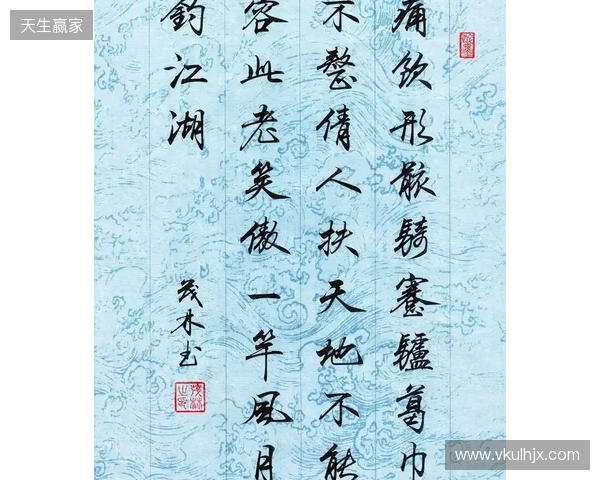 天生赢家
痛飲形骸騎蹇驢葛巾
不整倩人扶天地不能
容此老笑傲一竿風月
釣江湖
茂林书
www.vkulhjx.com